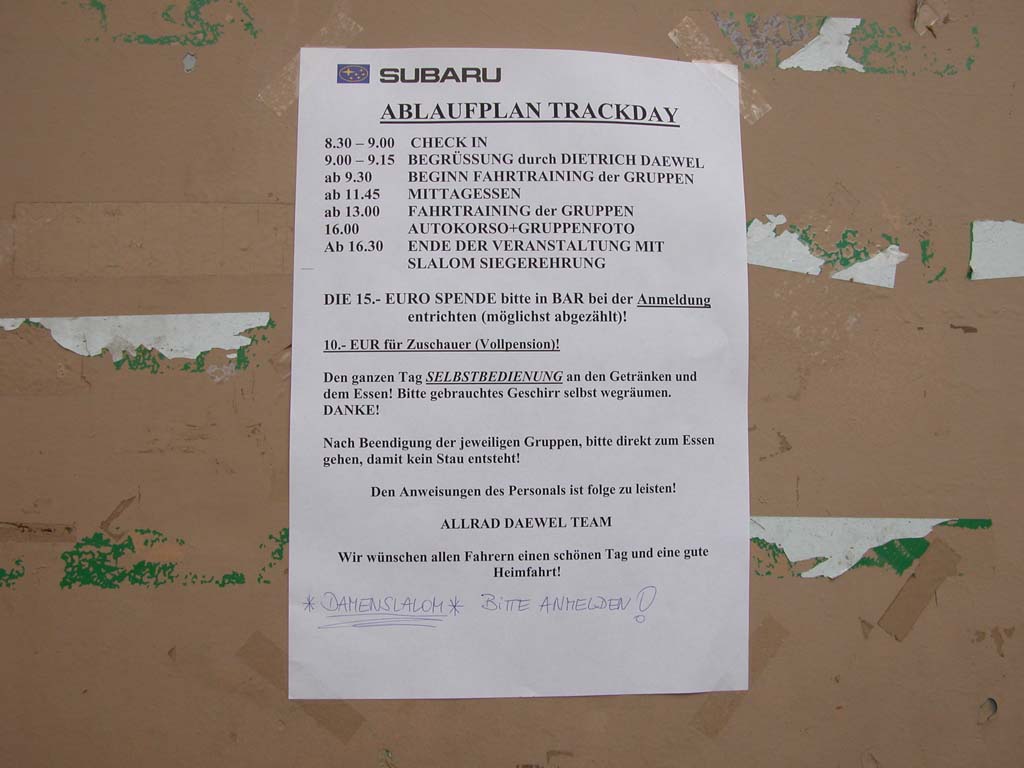 SUBARU
ABLAUFPLAN TRACKDAY
8.30 – 9.00 CHECK IN
9.00 – 9.15 BEGRÜSSUNG durch DIETRICH DAEWEL
ab 9.30 BEGINN FAHRTRAINING der GRUPPEN
ab 11.45 MITTAGESSEN
ab 13.00 FAHRTRAINING der GRUPPEN
16.00 AUTOKORSO+GRUPPENFOTO
Ab 16.30 ENDE DER VERANSTALTUNG MIT
SLALOM SIEGEREHRUNG
DIE 15.- EURO SPENDE bitte in BAR bei der Anmeldung
entrichten (möglichst abgezählt)!
10.- EUR für Zuschauer (Vollpension)!
Den ganzen Tag SELBSTBEDIENUNG an den Getränken und
dem Essen! Bitte gebrauchtes Geschirr selbst wegräumen.
DANKE!
Nach Beendigung der jeweiligen Gruppen, bitte direkt zum Essen
gehen, damit kein Stau entsteht!
Den Anweisungen des Personals ist folge zu leisten!
ALLRAD DAEWEL TEAM
Wir wünschen allen Fahrern einen schönen Tag und eine gute
Heimfahrt!
* DAMENSLALOM * BITTE ANMELDEN!